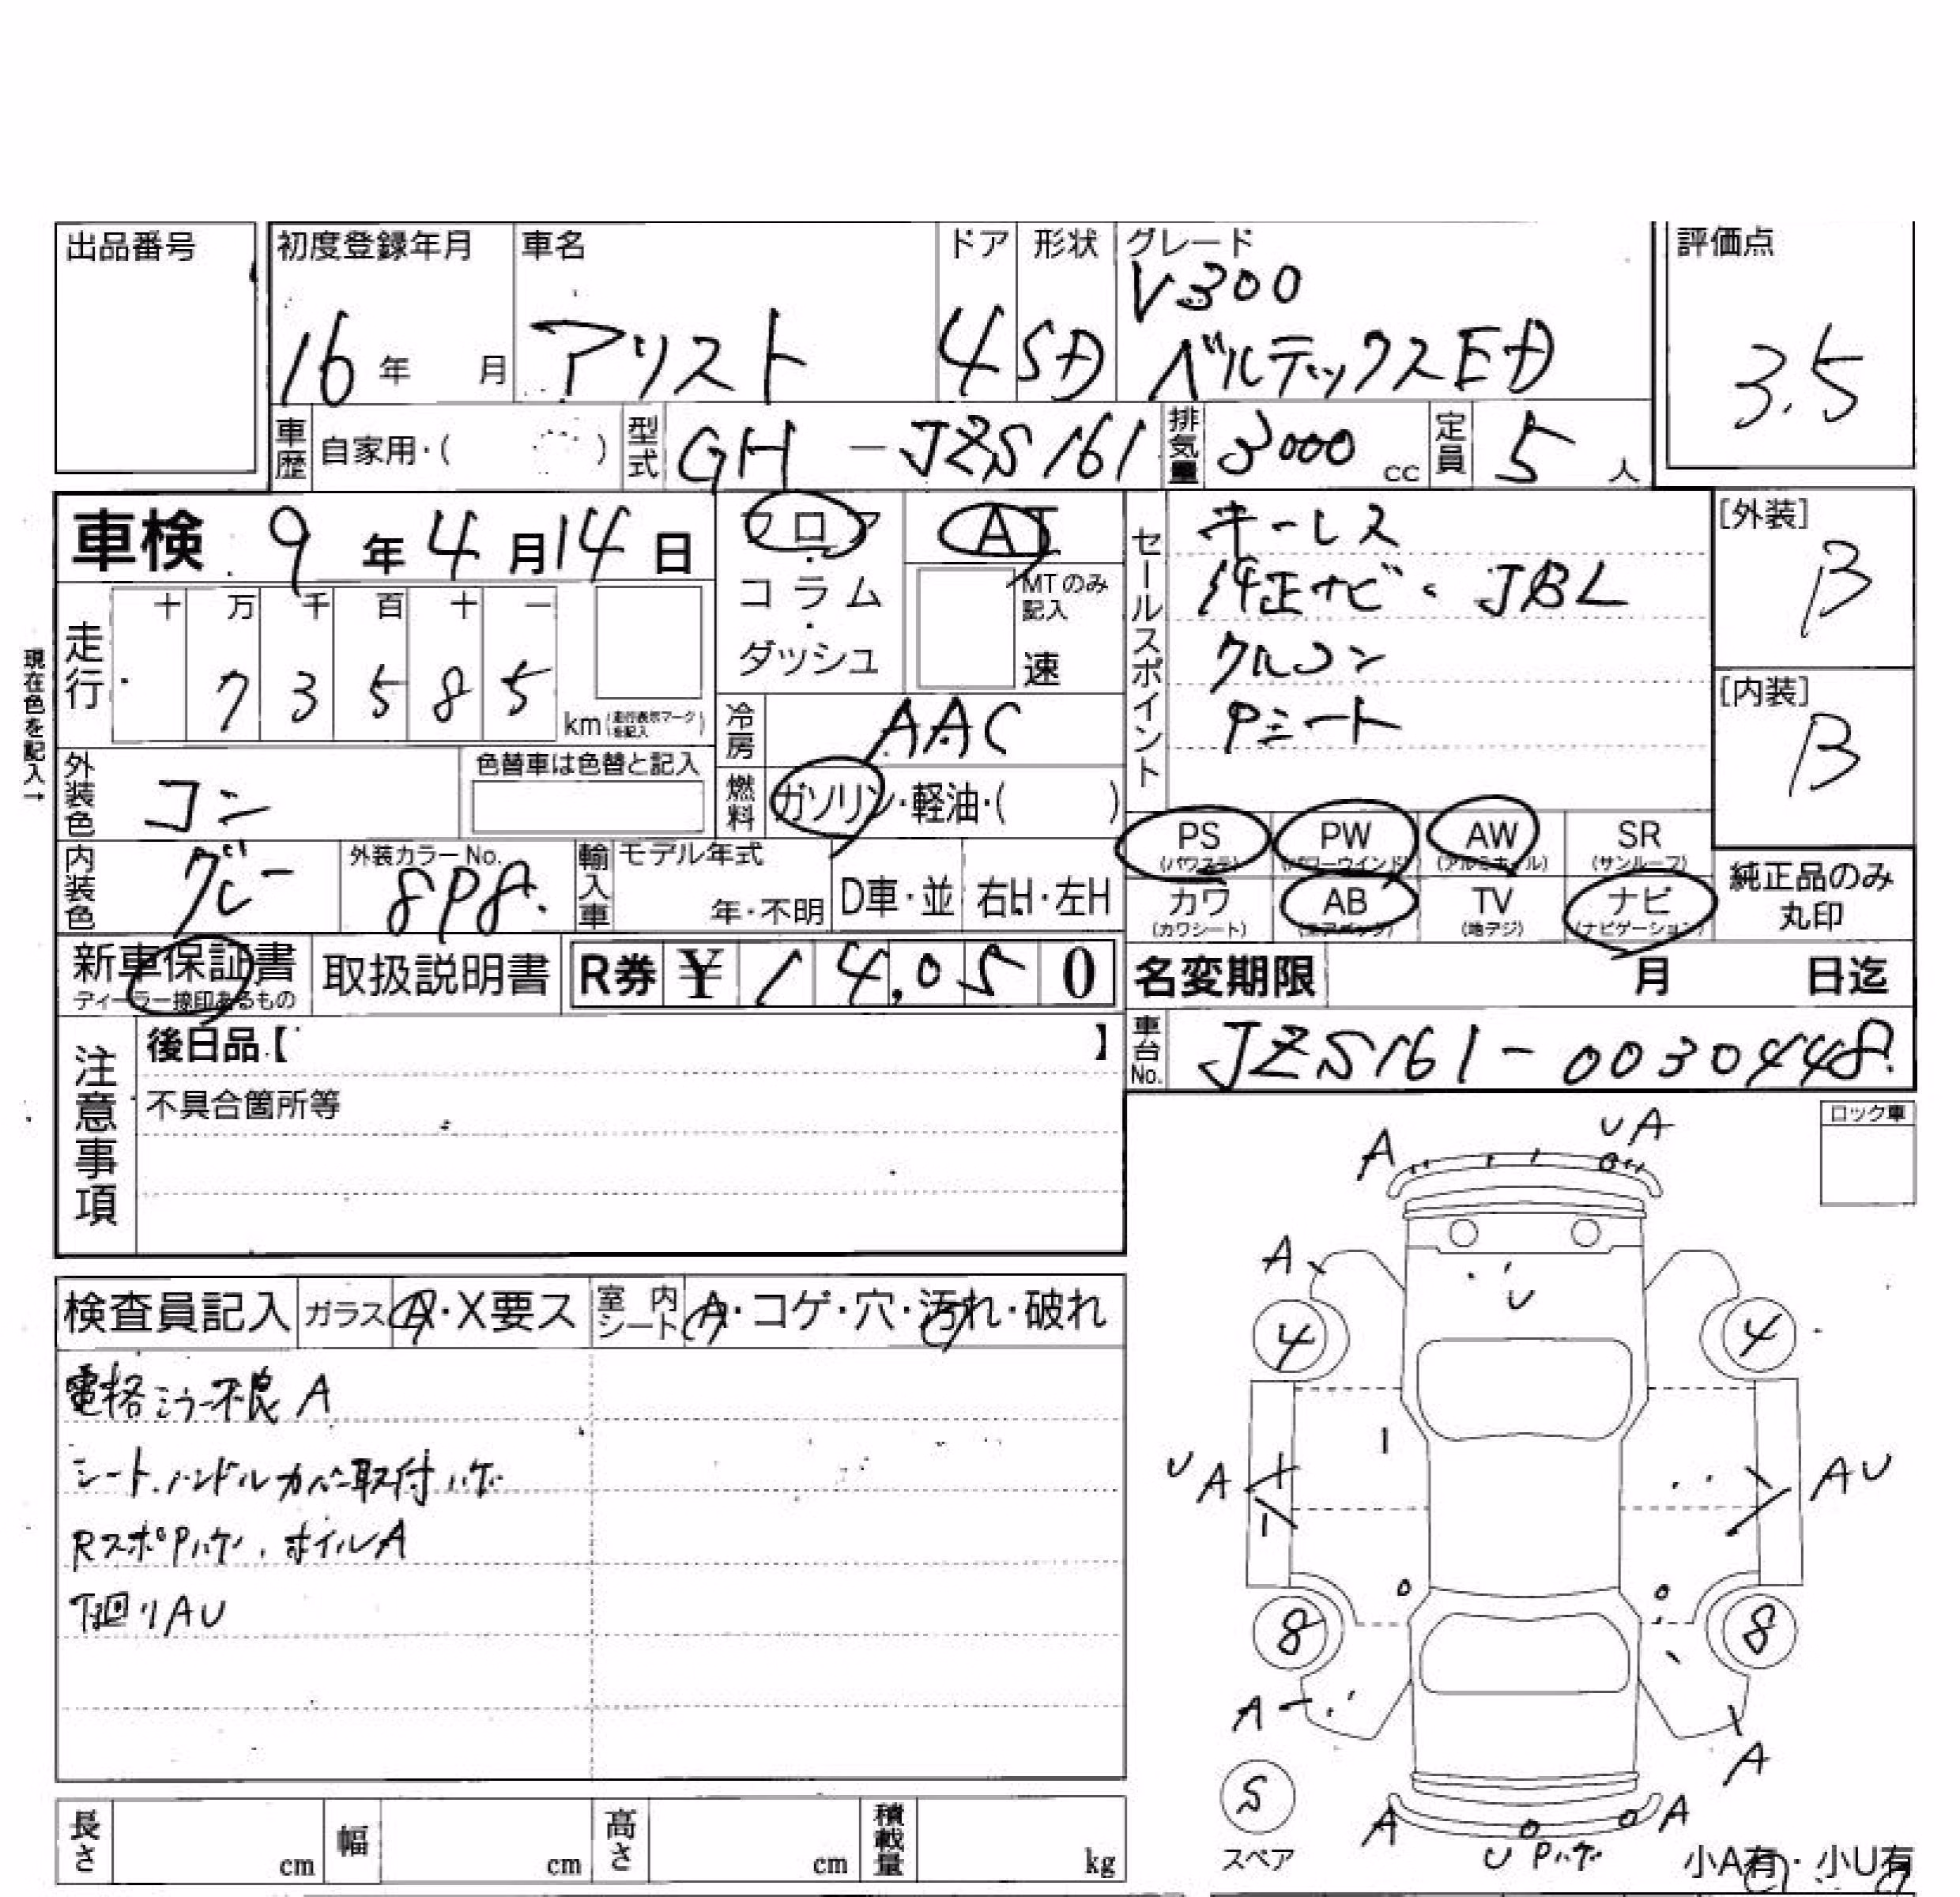 出品番号
初度登録年月 車名 ドア 形状 グレード 評価点
V300
16年 月 アリスト 4 SD ベルテックスED 3.5
車歴 自家用・( ) 型式 GH-JZS161 排気量 3000 cc 定員 5 人
車検 9年4月14日
フロア・コラム・ダッシュ
AT
MTのみ記入
速
セールスポイント
キーレス
純正ナビ・JBL
クルコン
Pシート
[外装]
B
[内装]
B
現在色を記入→
走行 十 万 千 百 十 一
7 3 5 8 5 km (走行表示マークを記入)
冷房 AAC
外装色 コン 色替車は色替と記入
燃料 ガソリン・軽油・( )
PS (パワステ) PW (パワーウインド) AW (アルミホイル) SR (サンルーフ)
内装色 グレー 外装カラーNo. 8P8. 輸入車 モデル年式 年・不明 D車・並 右H・左H
カワ (カワシート) AB (エアバッグ) TV (地デジ) ナビ (ナビゲーション)
純正品のみ丸印
新車保証書 ディーラー捺印あるもの 取扱説明書 R券 ¥ 14,050
名変期限 月 日迄
注意事項
後日品【 】
不具合箇所等
車台No. JZS161-0030448
ロック車
A UA
A
U
4 4
U A AU
8 8
A A
S
スペア
A A
U Pハゲ
小A有・小U有
検査員記入 ガラス A・X要ス 室内シート A・コゲ・穴・汚れ・破れ
電格ミラー不良 A
シート.ハンドルカバー取付ハゲ
RスポPハゲ.ホイルA
下廻りAU
長さ cm 幅 cm 高さ cm 積載量 kg